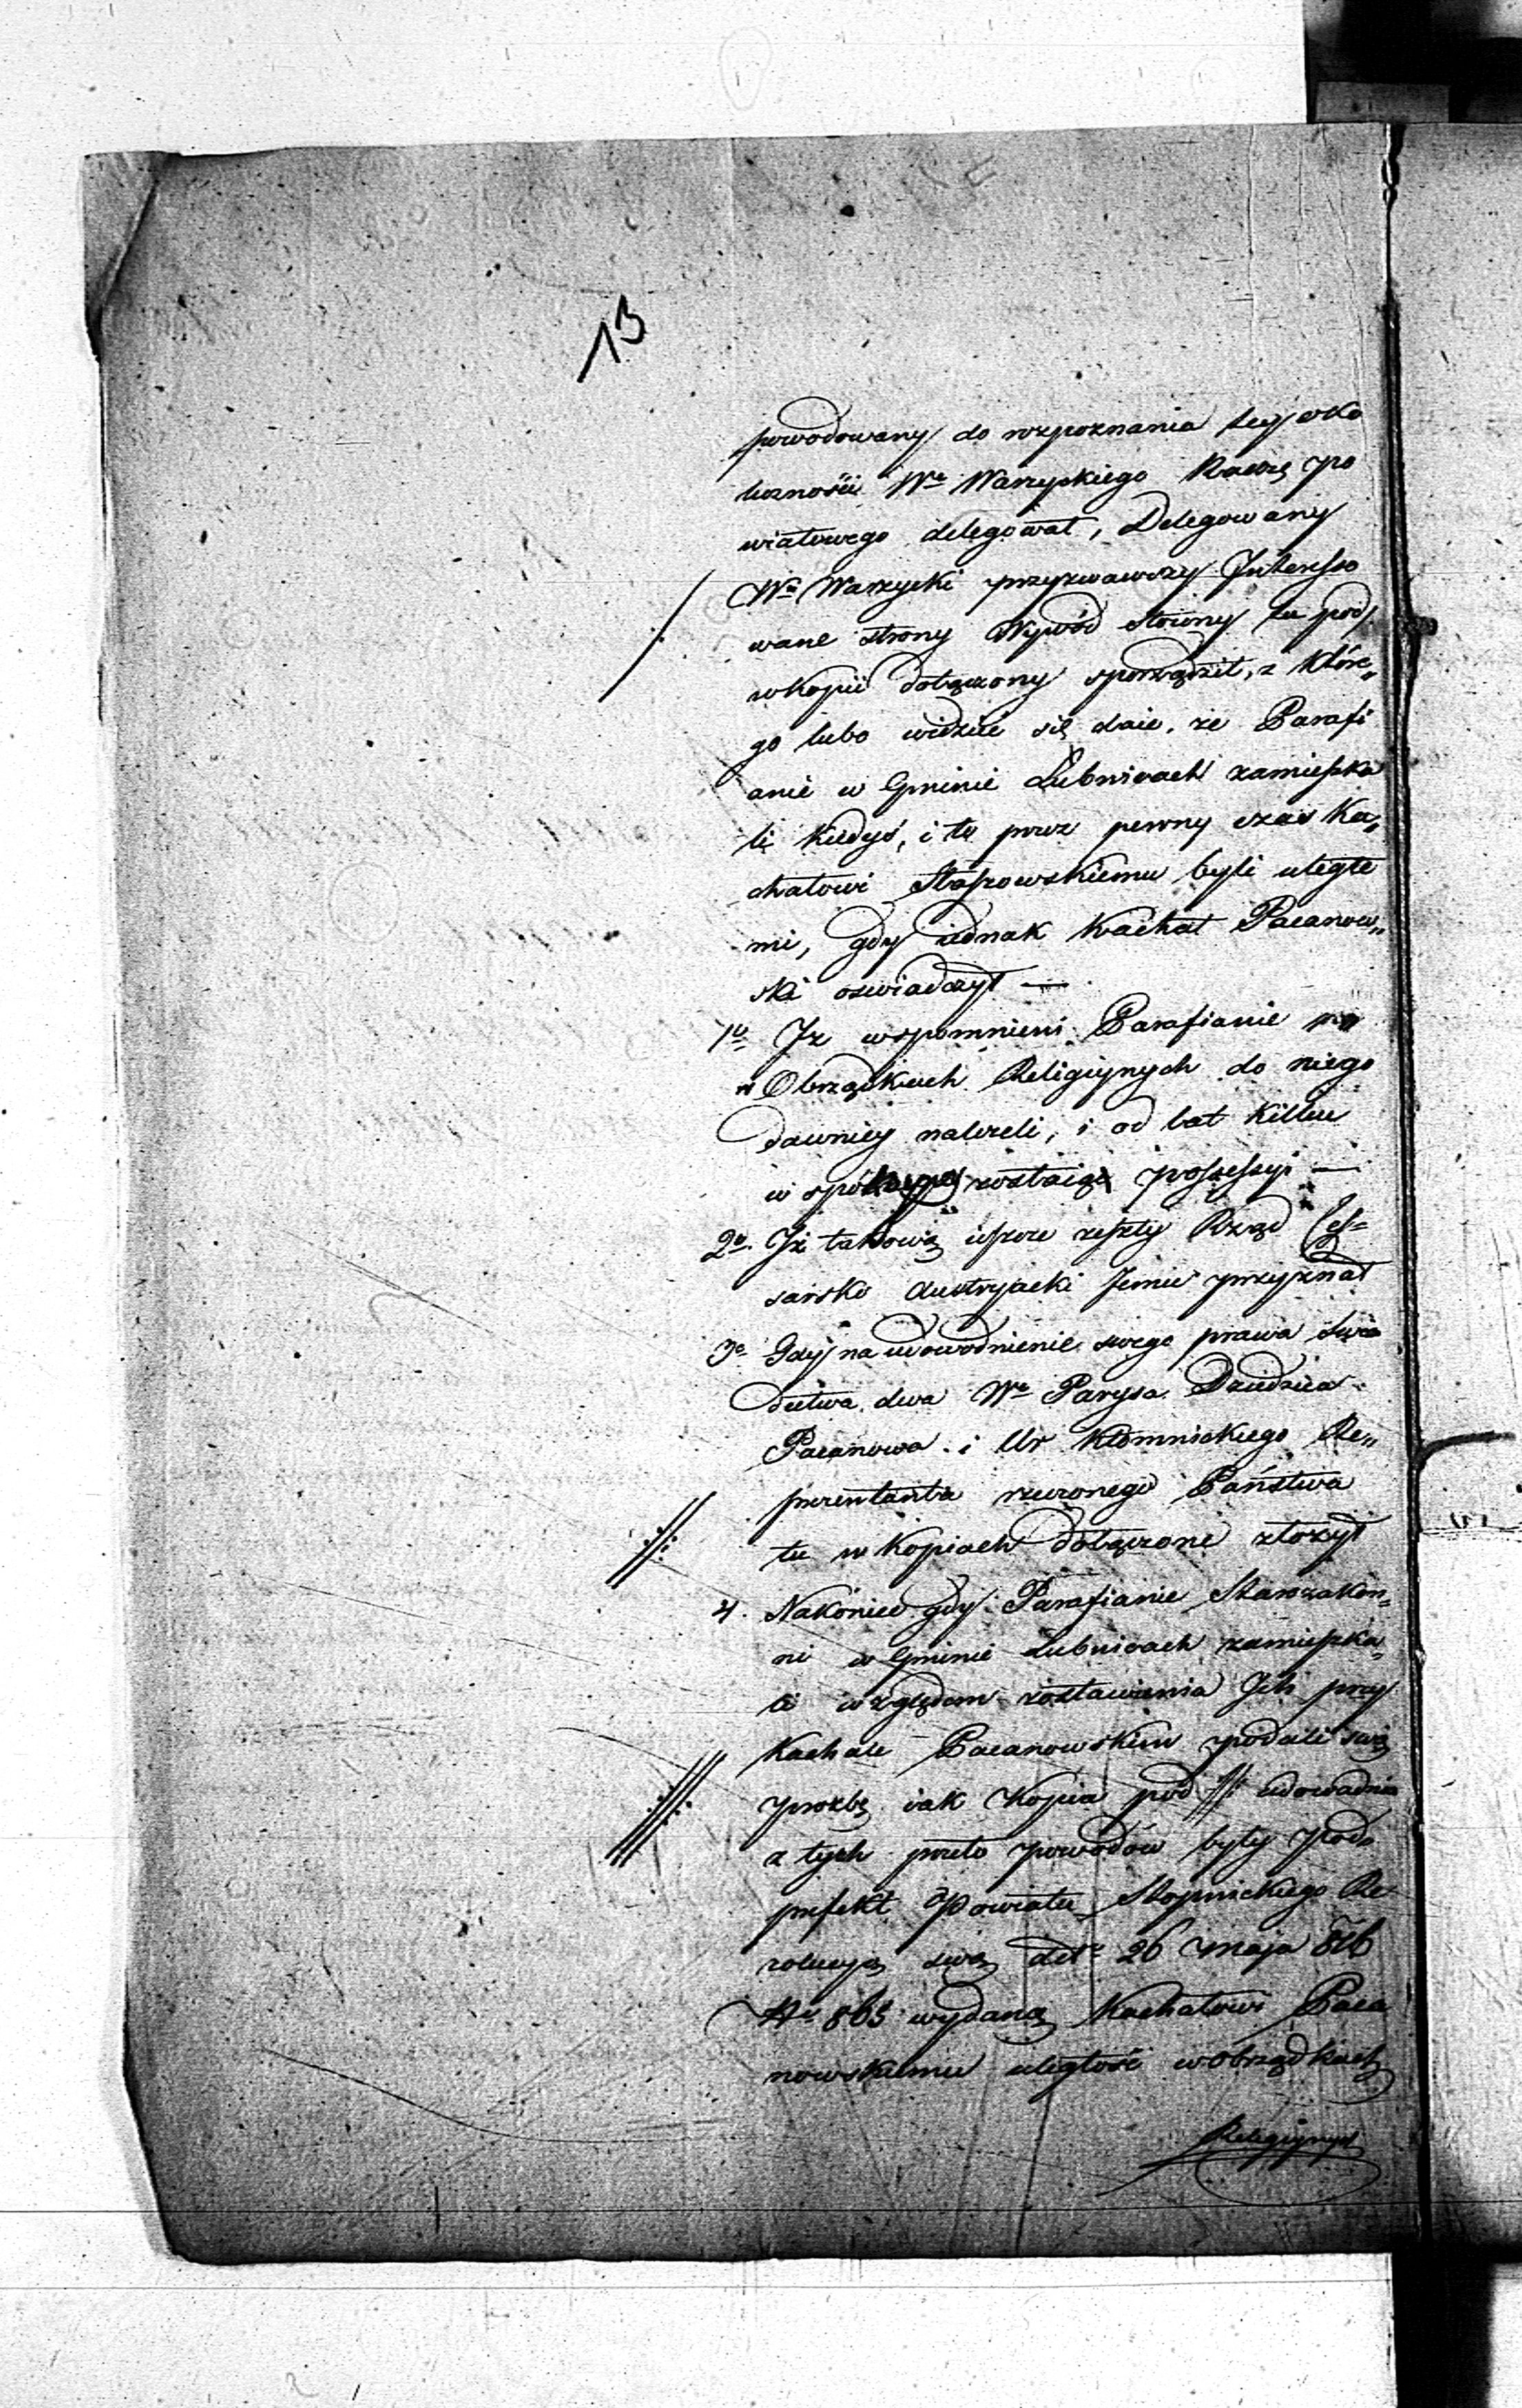 13
powodowany do rozpoznania tey oko
liczności Wo Warzyckiego Radzcę po
wiatowego delegował, Delegowany
Wy Warzycki przyzwawszy Interesso
wane strony Wywód słowny tu pod ./.
w kopii dołączony sporządził, z które„
go lubo widzieć się daie, że Parafi
anie w Gminie Łubnicach zamieszka
li kiedyś, i to przez pewny czas Ka„
chałowi Stopowskiemu byli uległe
mi, gdy iednak Kachał Pacanow„
ski oswiadczył —
1o Iż wspomnieni Parafianie
w Obrządkach Religiynych do niego
dawniey należeli, i od lat kilku
w zostaią possessyi —
2o Iż takową ieszcze zeszły Rząd Ces=
sarsko Austryacki Jemu przyznał
3o Gdy na udowodnienie swego prawa świa
dectwa dwa Wo Parysa Dziedzica
Pacanowa i Ur Kłomnickiego Re„
prezentanta rzeczonego Państwa
tu w kopiach dołączone złożył
4. Nakoniec gdy Parafianie Starozakon„
ni w Gminie Łubnicach zamieszka„
li względem zostawienia Ich przy
Kachale Pacanowskim podali swą
prozbę iak kopia pod udowadnia
z tych przeto powodów były Pod„
prefekt Powiatu Stopnickiego Re
zolucyą swą dtto 26 Maja 816
No 865 wydaną Kachałowi Paca
nowskiemu uległość w obrządkach
Religiynych